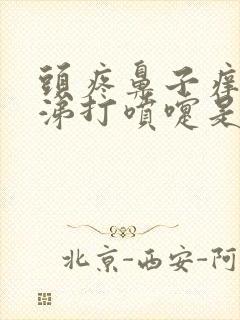 頭疼鼻子痒
涕打噴嚏是
北京-西安-阿